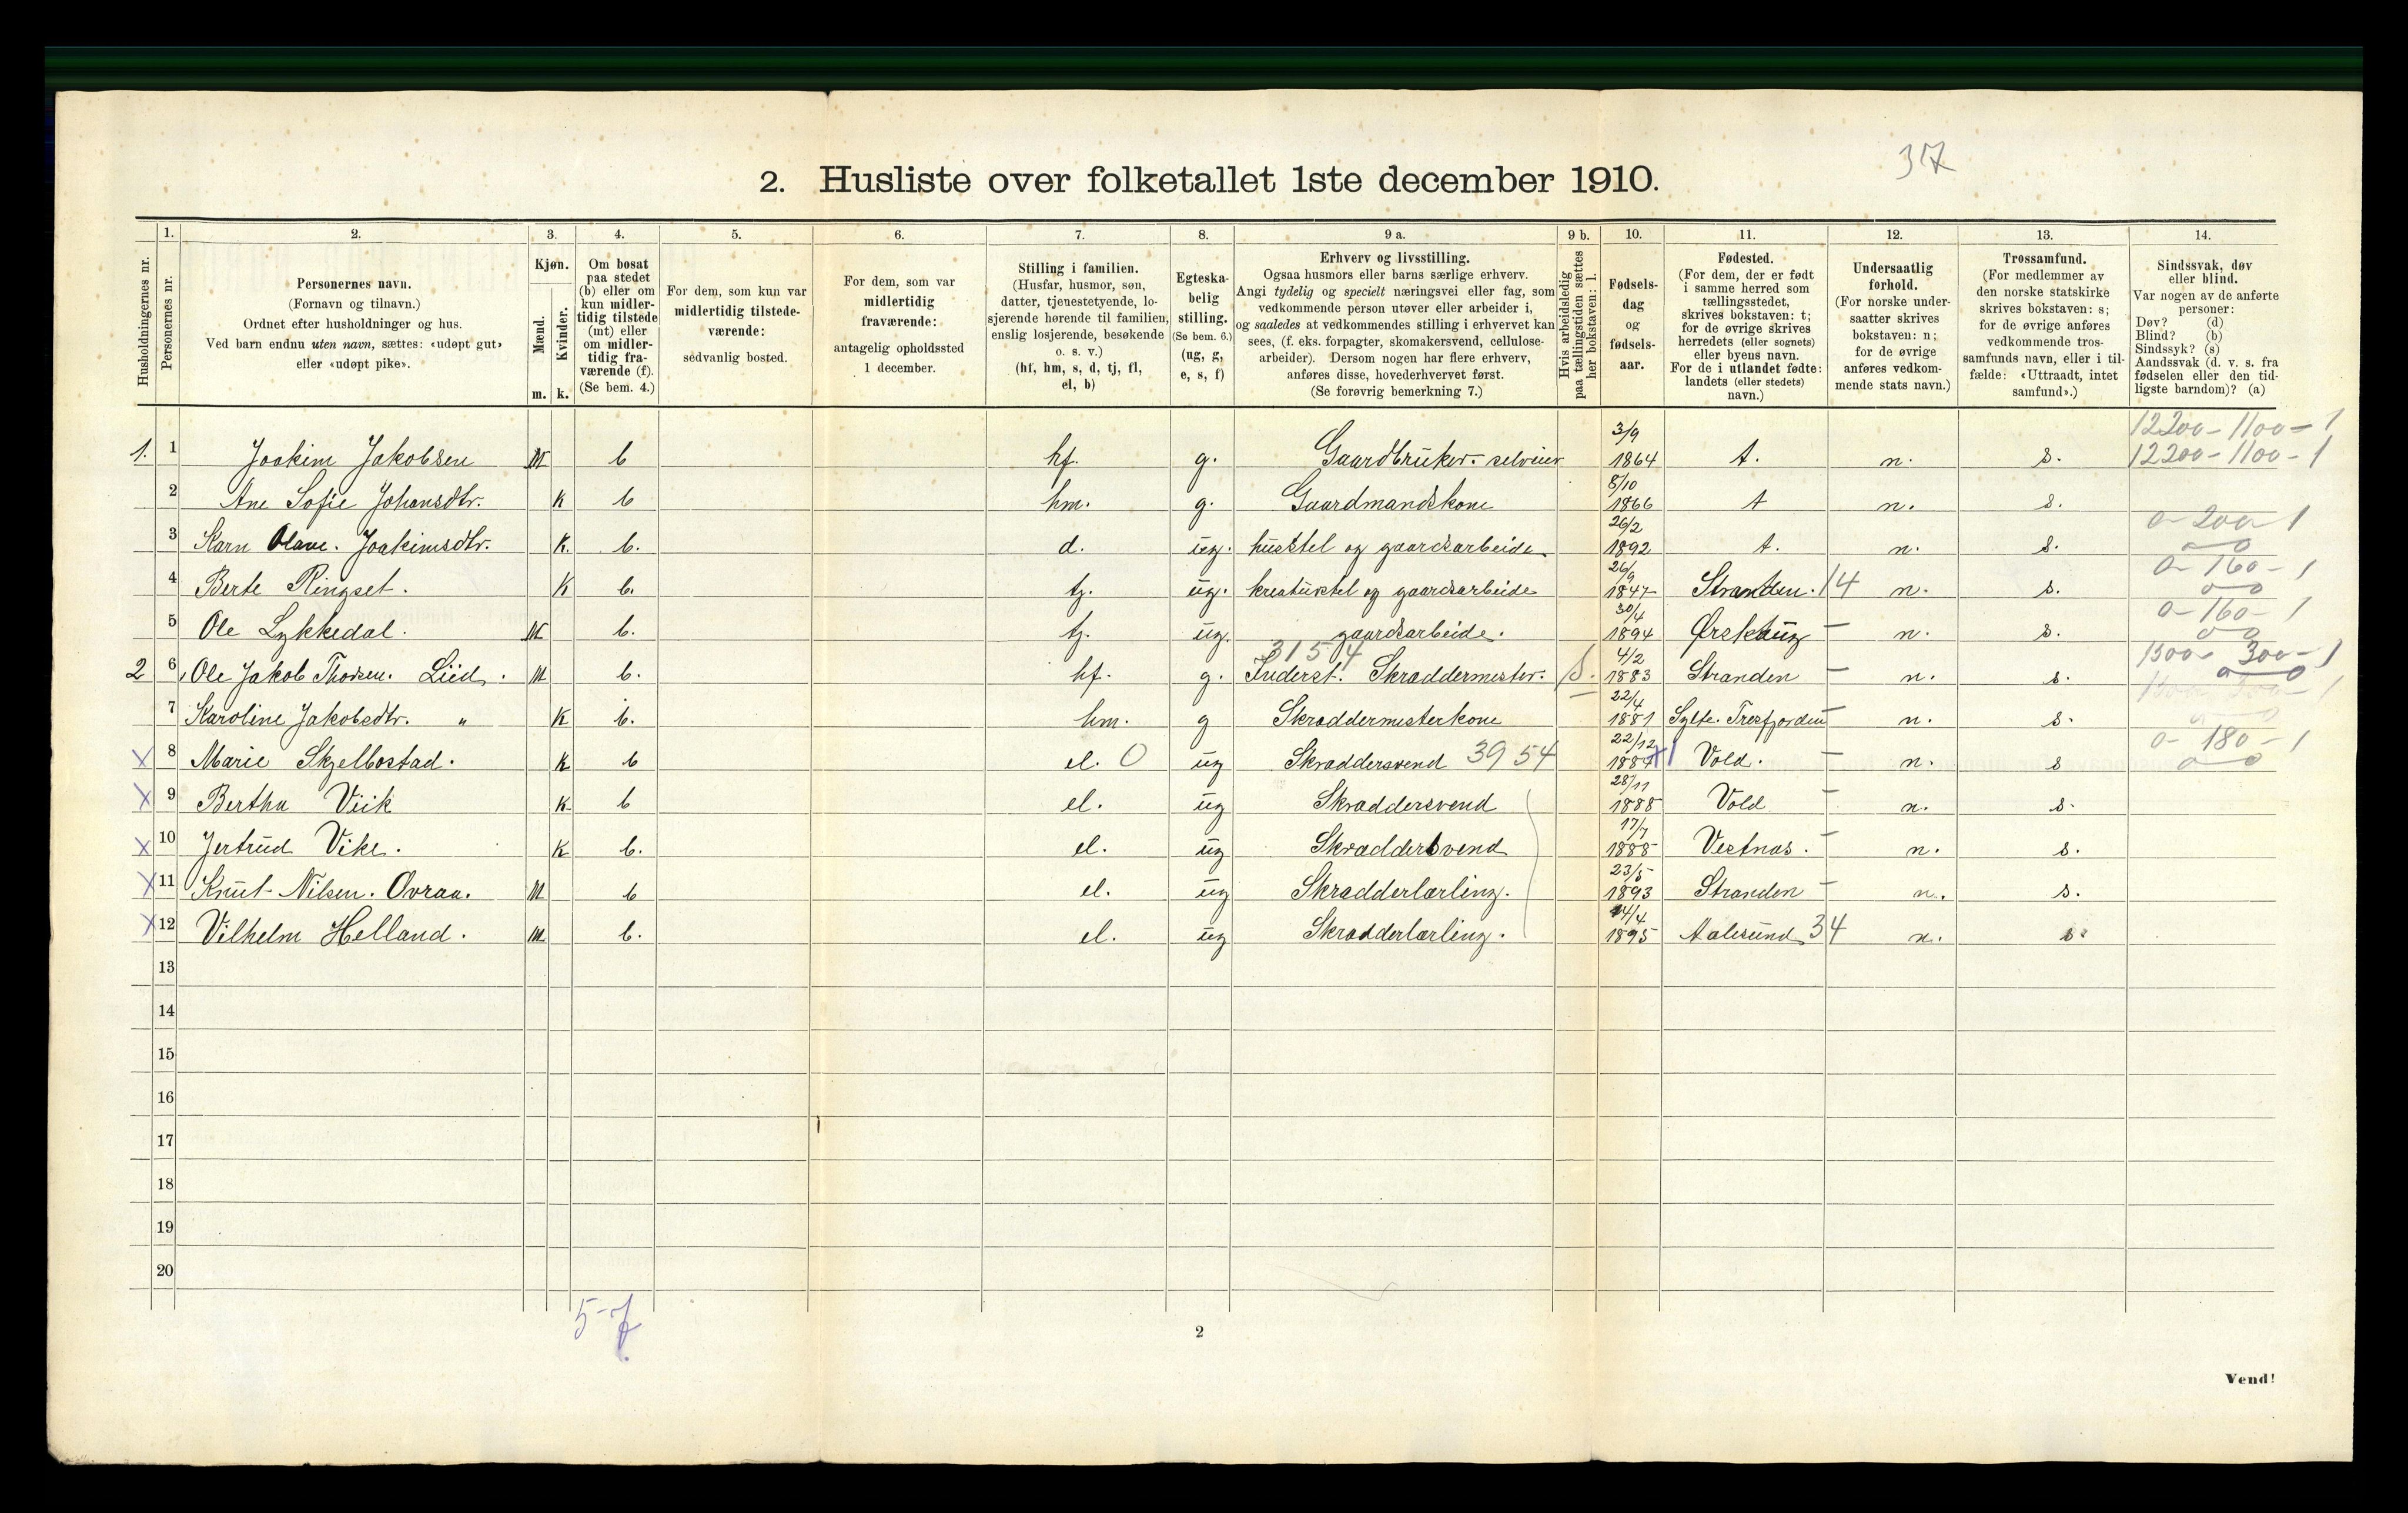 37
2. Husliste over folketallet 1ste december 1910.
Husholdningernes nr.
1.
Personernes nr.
2.
Personernes navn.
(Fornavn og tilnavn.)
Ordnet efter husholdninger og hus.
Ved barn endnu uten navn, sættes: «udøpt gut»
eller «udøpt pike».
3.
Kjøn.
Mænd.
Kvinder.
m. k.
4.
Om bosat
paa stedet
(b) eller om
kun midler-
tidig tilstede
(mt) eller
om midler-
tidig fra-
værende (f).
(Se bem. 4.)
5.
For dem, som kun var
midlertidig tilstede-
værende:
sedvanlig bosted.
6.
For dem, som var
midlertidig
fraværende:
antagelig opholdssted
1 december.
7.
Stilling i familien.
(Husfar, husmor, søn,
datter, tjenestetyende, lo-
sjerende hørende til familien,
enslig losjerende, besøkende
o. s. v.)
(hf, hm, s, d, tj, fl,
el, b)
8.
Egteska-
belig
stilling.
(Se bem. 6.)
(ug, g,
e, s, f)
9 a.
Erhverv og livsstilling.
Ogsaa husmors eller barns særlige erhverv.
Angi tydelig og specielt næringsvei eller fag, som
vedkommende person utøver eller arbeider i,
og saaledes at vedkommendes stilling i erhvervet kan
sees, (f. eks. forpagter, skomakersvend, cellulose-
arbeider). Dersom nogen har flere erhverv,
anføres disse, hovederhvervet først.
(Se forøvrig bemerkning 7.)
9 b.
Hvis arbeidsledig
paa tællingstiden sættes
her bokstaven: l.
10.
Fødsels-
dag
og
fødsels-
aar.
11.
Fødested.
(For dem, der er født
i samme herred som
tællingsstedet,
skrives bokstaven: t;
for de øvrige skrives
herredets (eller sognets)
eller byens navn.
For de i utlandet fødte:
landets (eller stedets)
navn.)
12.
Undersaatlig
forhold.
(For norske under-
saatter skrives
bokstaven: n;
for de øvrige
anføres vedkom-
mende stats navn.)
13.
Trossamfund.
(For medlemmer av
den norske statskirke
skrives bokstaven: s;
for de øvrige anføres
vedkommende tros-
samfunds navn, eller i til-
fælde: «Uttraadt, intet
samfund».)
14.
Sindssvak, døv
eller blind.
Var nogen av de anførte
personer:
Døv? (d)
Blind? (b)
Sindssyk? (s)
Aandssvak (d. v. s. fra
fødselen eller den tid-
ligste barndom)? (a)
12200-1100-1
1. 1 Joakim Jakobsen M b hf. g. Gaardbruker - selveier 3/9 1864 t. n. s. 12200-1100-1
2 Ane Sofie Johansdtr. K b hm. g. Gaardmandskone 8/10 1866 t n. s.
3 Karn Olave. Joakimsdtr. K. b. d. ug. husstel og gaardsarbeide 26/2 1892 t. n. s. 0-200-1
4 Berte Ringset. K b. tj. ug. kreaturstel og gaardsarbeide 26/9 1847 Stranden. 14 n. s. 0-160-1
5 Ole Lykkedal. M b. tj. ug. gaardsarbeide. 30/4 1894 Ørskaug - n. s. 0-160-1
3154
2 6 Ole Jakob Thorsen. Liid. M b. hf. g. Inderst. Skraddermester. 4/2 1883 Stranden - n. s. 1300-300-1
7 Karoline Jakobsdtr. " K b. hm. g Skraddermesterkone 22/4 1881 Sylte. Tresfjorden - n. s.
X 8 Marie Skjelbostad. K b el. 0 ug Skraddersvend 3954 22/12 1887 Vold. - n. s 0-180-1
X 9 Bertha Viik K b el. ug Skraddersvend 28/11 1888 Vold - n. s.
X 10 Jertrud Vike. K b. el. ug Skraddersvend 17/7 1888 Vestnas. - n. s.
X 11 Knut Nilsen. Ovraa. M b el. ug Skradderlærling. 23/5 1893 Stranden - n. s.
X 12 Vilhelm Helland. M b. el. ug Skradderlærling. 14/4 1895 Aalesund 34 n. s.
13
14
15
16
17
18
19
20
5-7
2
Vend!